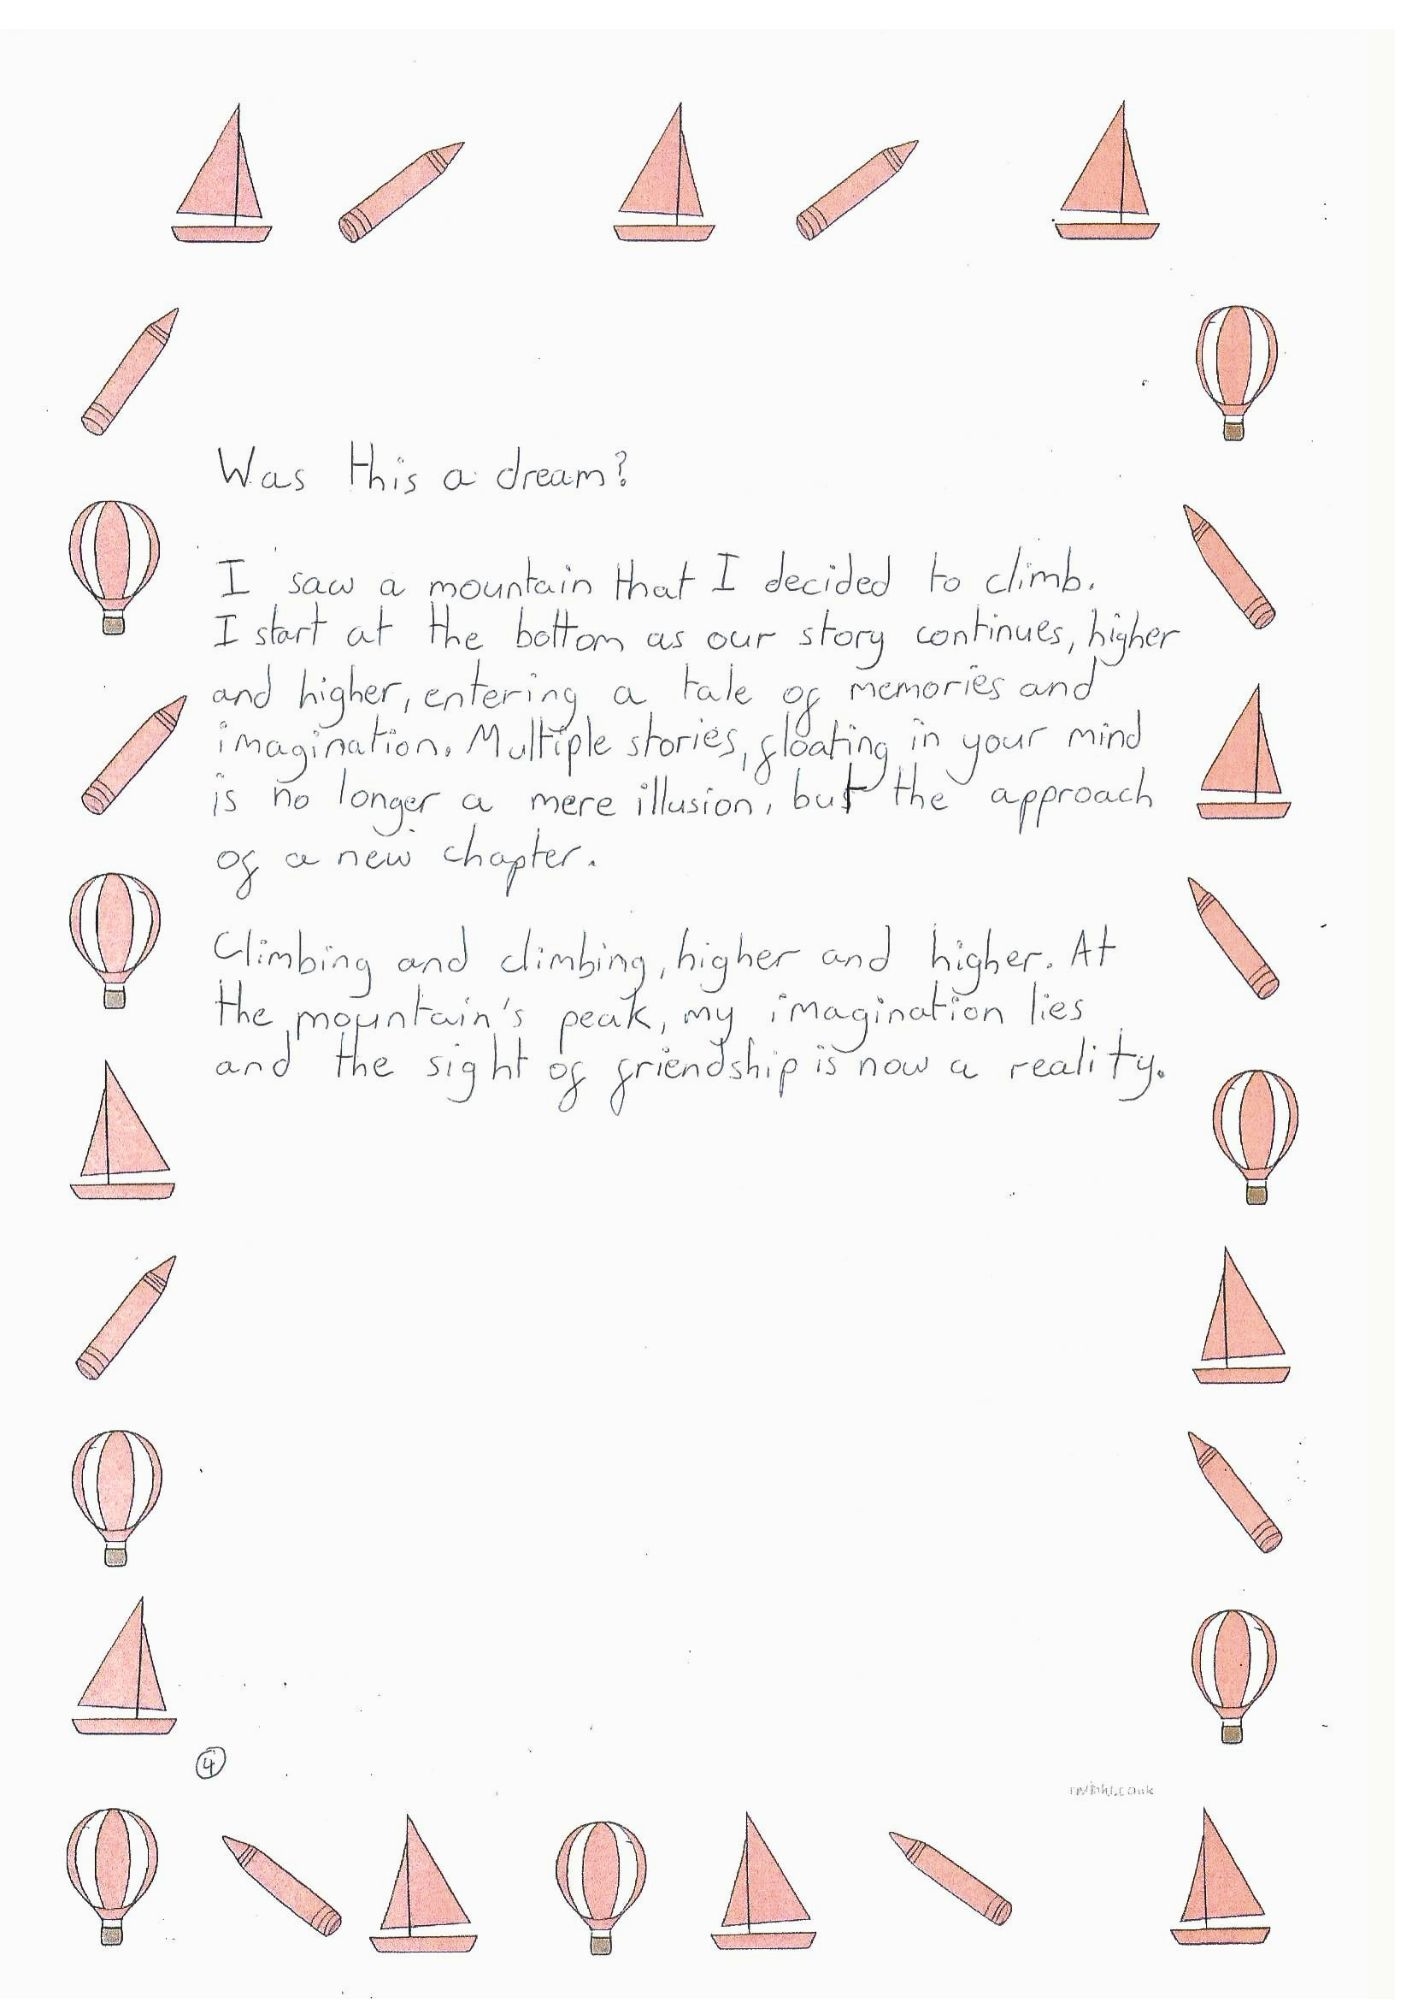 Was this a dream?
I saw a mountain that I decided to climb.
I start at the bottom as our story continues, higher
and higher, entering a tale of memories and
imagination. Multiple stories, floating in your mind
is no longer a mere illusion, but the approach
of a new chapter.
Climbing and climbing, higher and higher. At
the mountain's peak, my imagination lies
and the sight of friendship is now a reality.
4